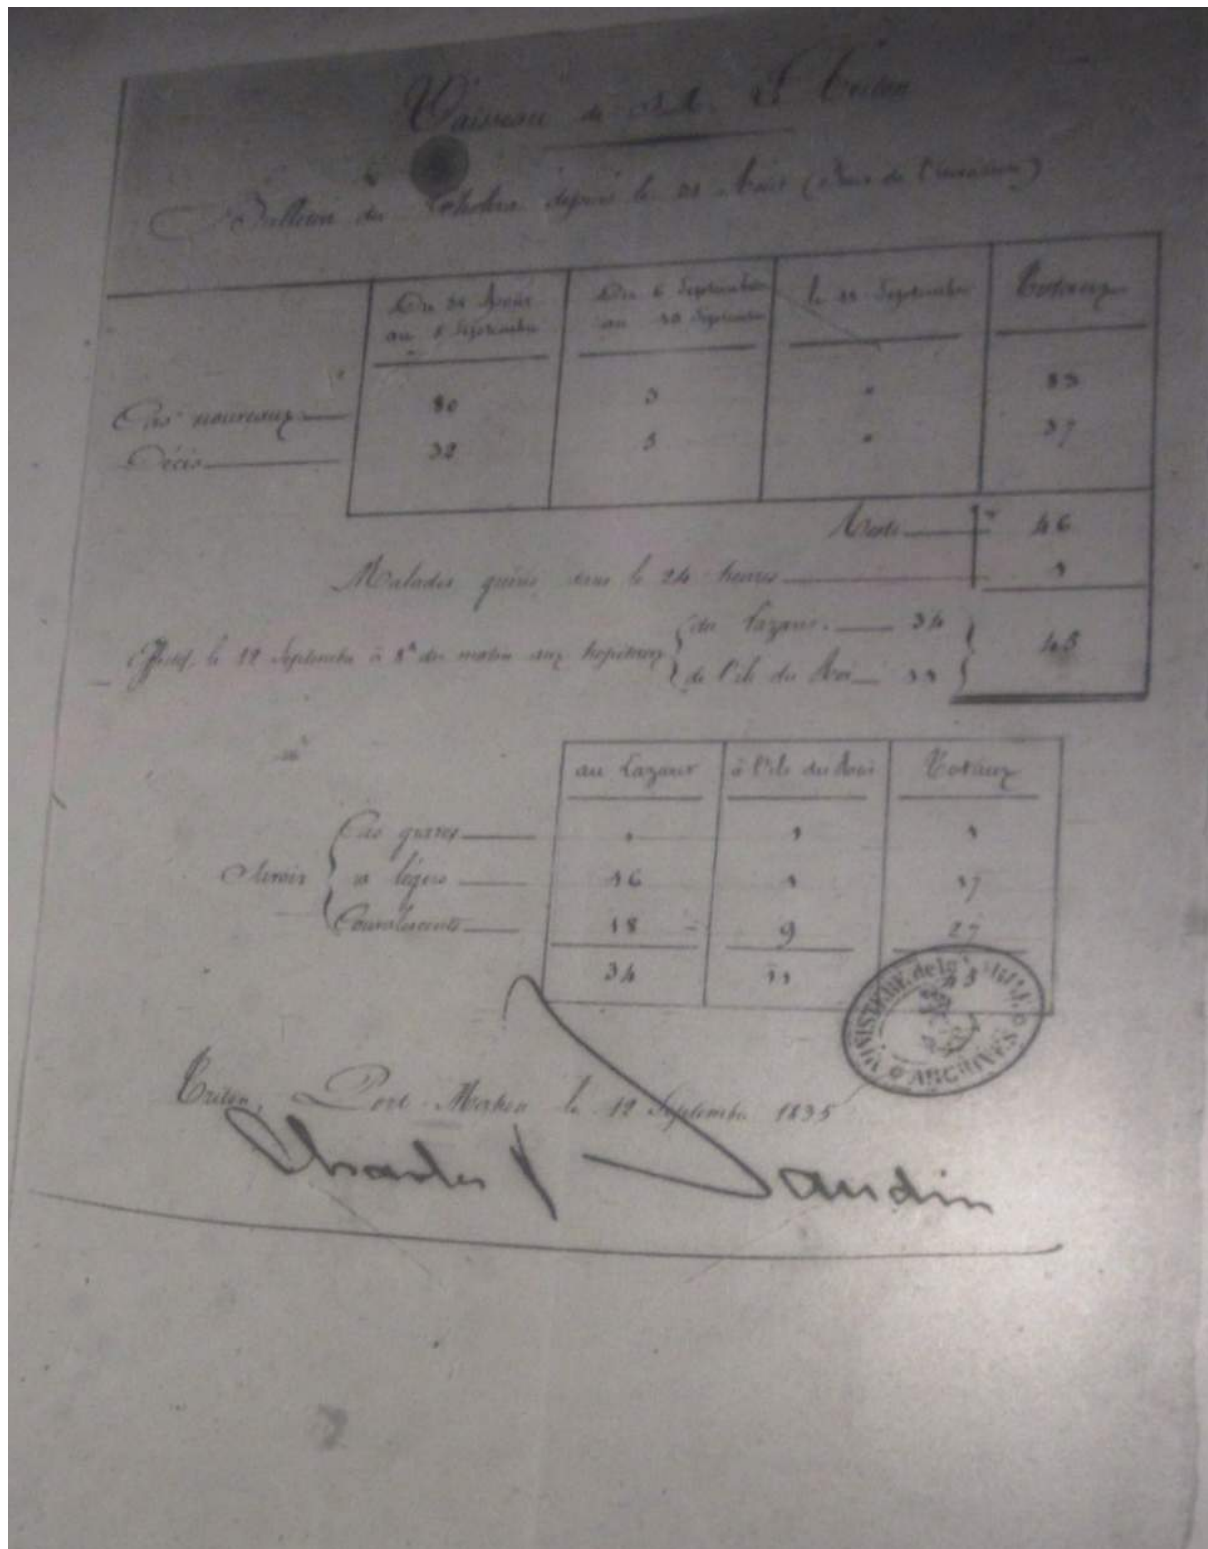 Vaisseau de S.M. Le Triton
Bulletin du Choléra depuis le 21 Août (Jour de l'invasion)
Du 21 Août Du 6 Septembre le 11 Septembre Totaux
au 5 Septembre au 10 Septembre
Cas nouveaux 80 3 " 83
Décès 32 5 " 37
Reste 46
Malades guéris dans les 24 heures 1
Effectif, le 12 Septembre à 8h du matin aux hôpitaux du Lazaret. 34 45
de l'île du Roi 11
au Lazaret à l'île du Roi Totaux
Cas graves " 1 1
Savoir légers 16 1 17
Convalescents 18 9 27
34 11 45
MINISTÈRE de la
ARCHIVES
Triton, Port-Mahon le 12 Septembre 1835
Charles Jaudin